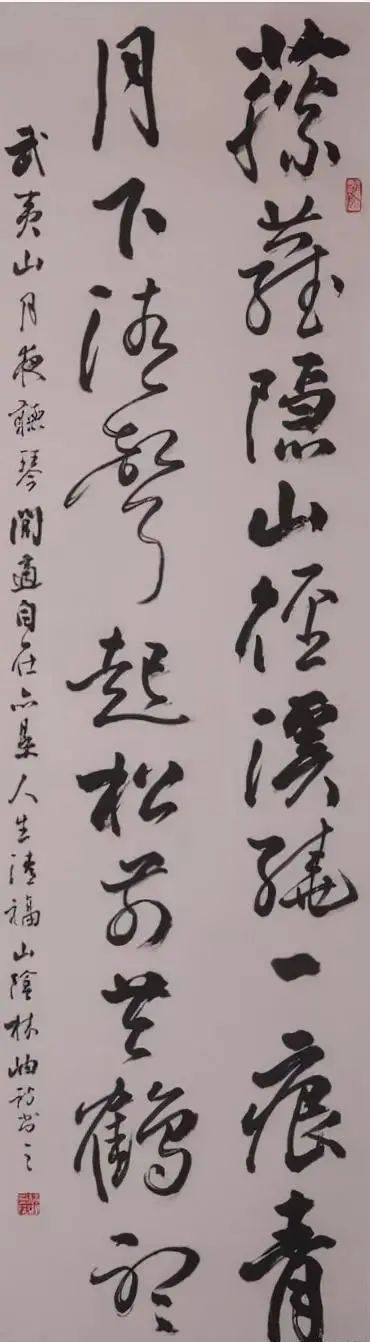 藤蘿隱山徑溪繞一痕青
月下清聲起松前共鶴聽
武夷山月夜聽琴閒適自在亦是人生清福山陰林岫詩書之